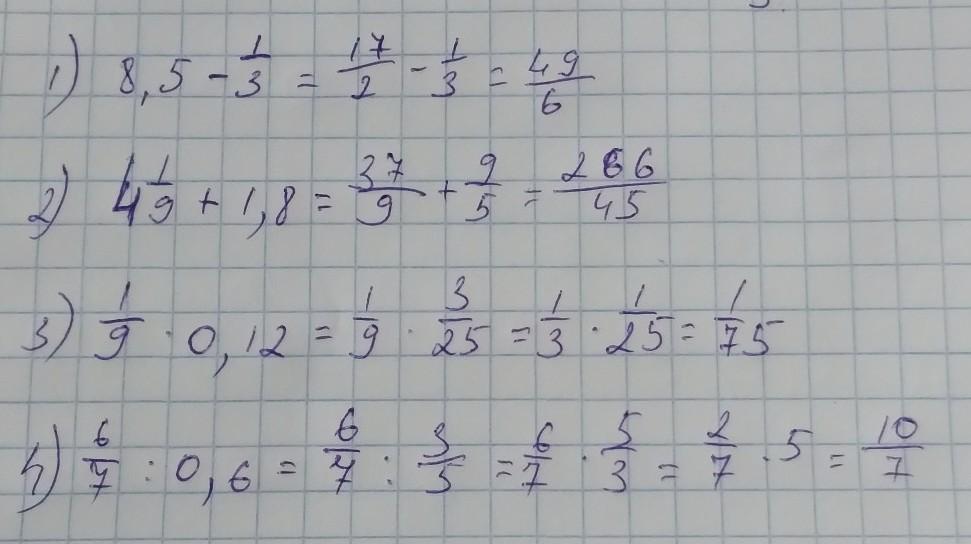 1) 8,5 - 1/3 = 17/2 - 1/3 = 49/6
2) 4 1/9 + 1,8 = 37/9 + 9/5 = 266/45
3) 1/9 · 0,12 = 1/9 · 3/25 = 1/3 · 1/25 = 1/75
4) 6/7 : 0,6 = 6/7 : 3/5 = 6/7 · 5/3 = 2/7 · 5 = 10/7